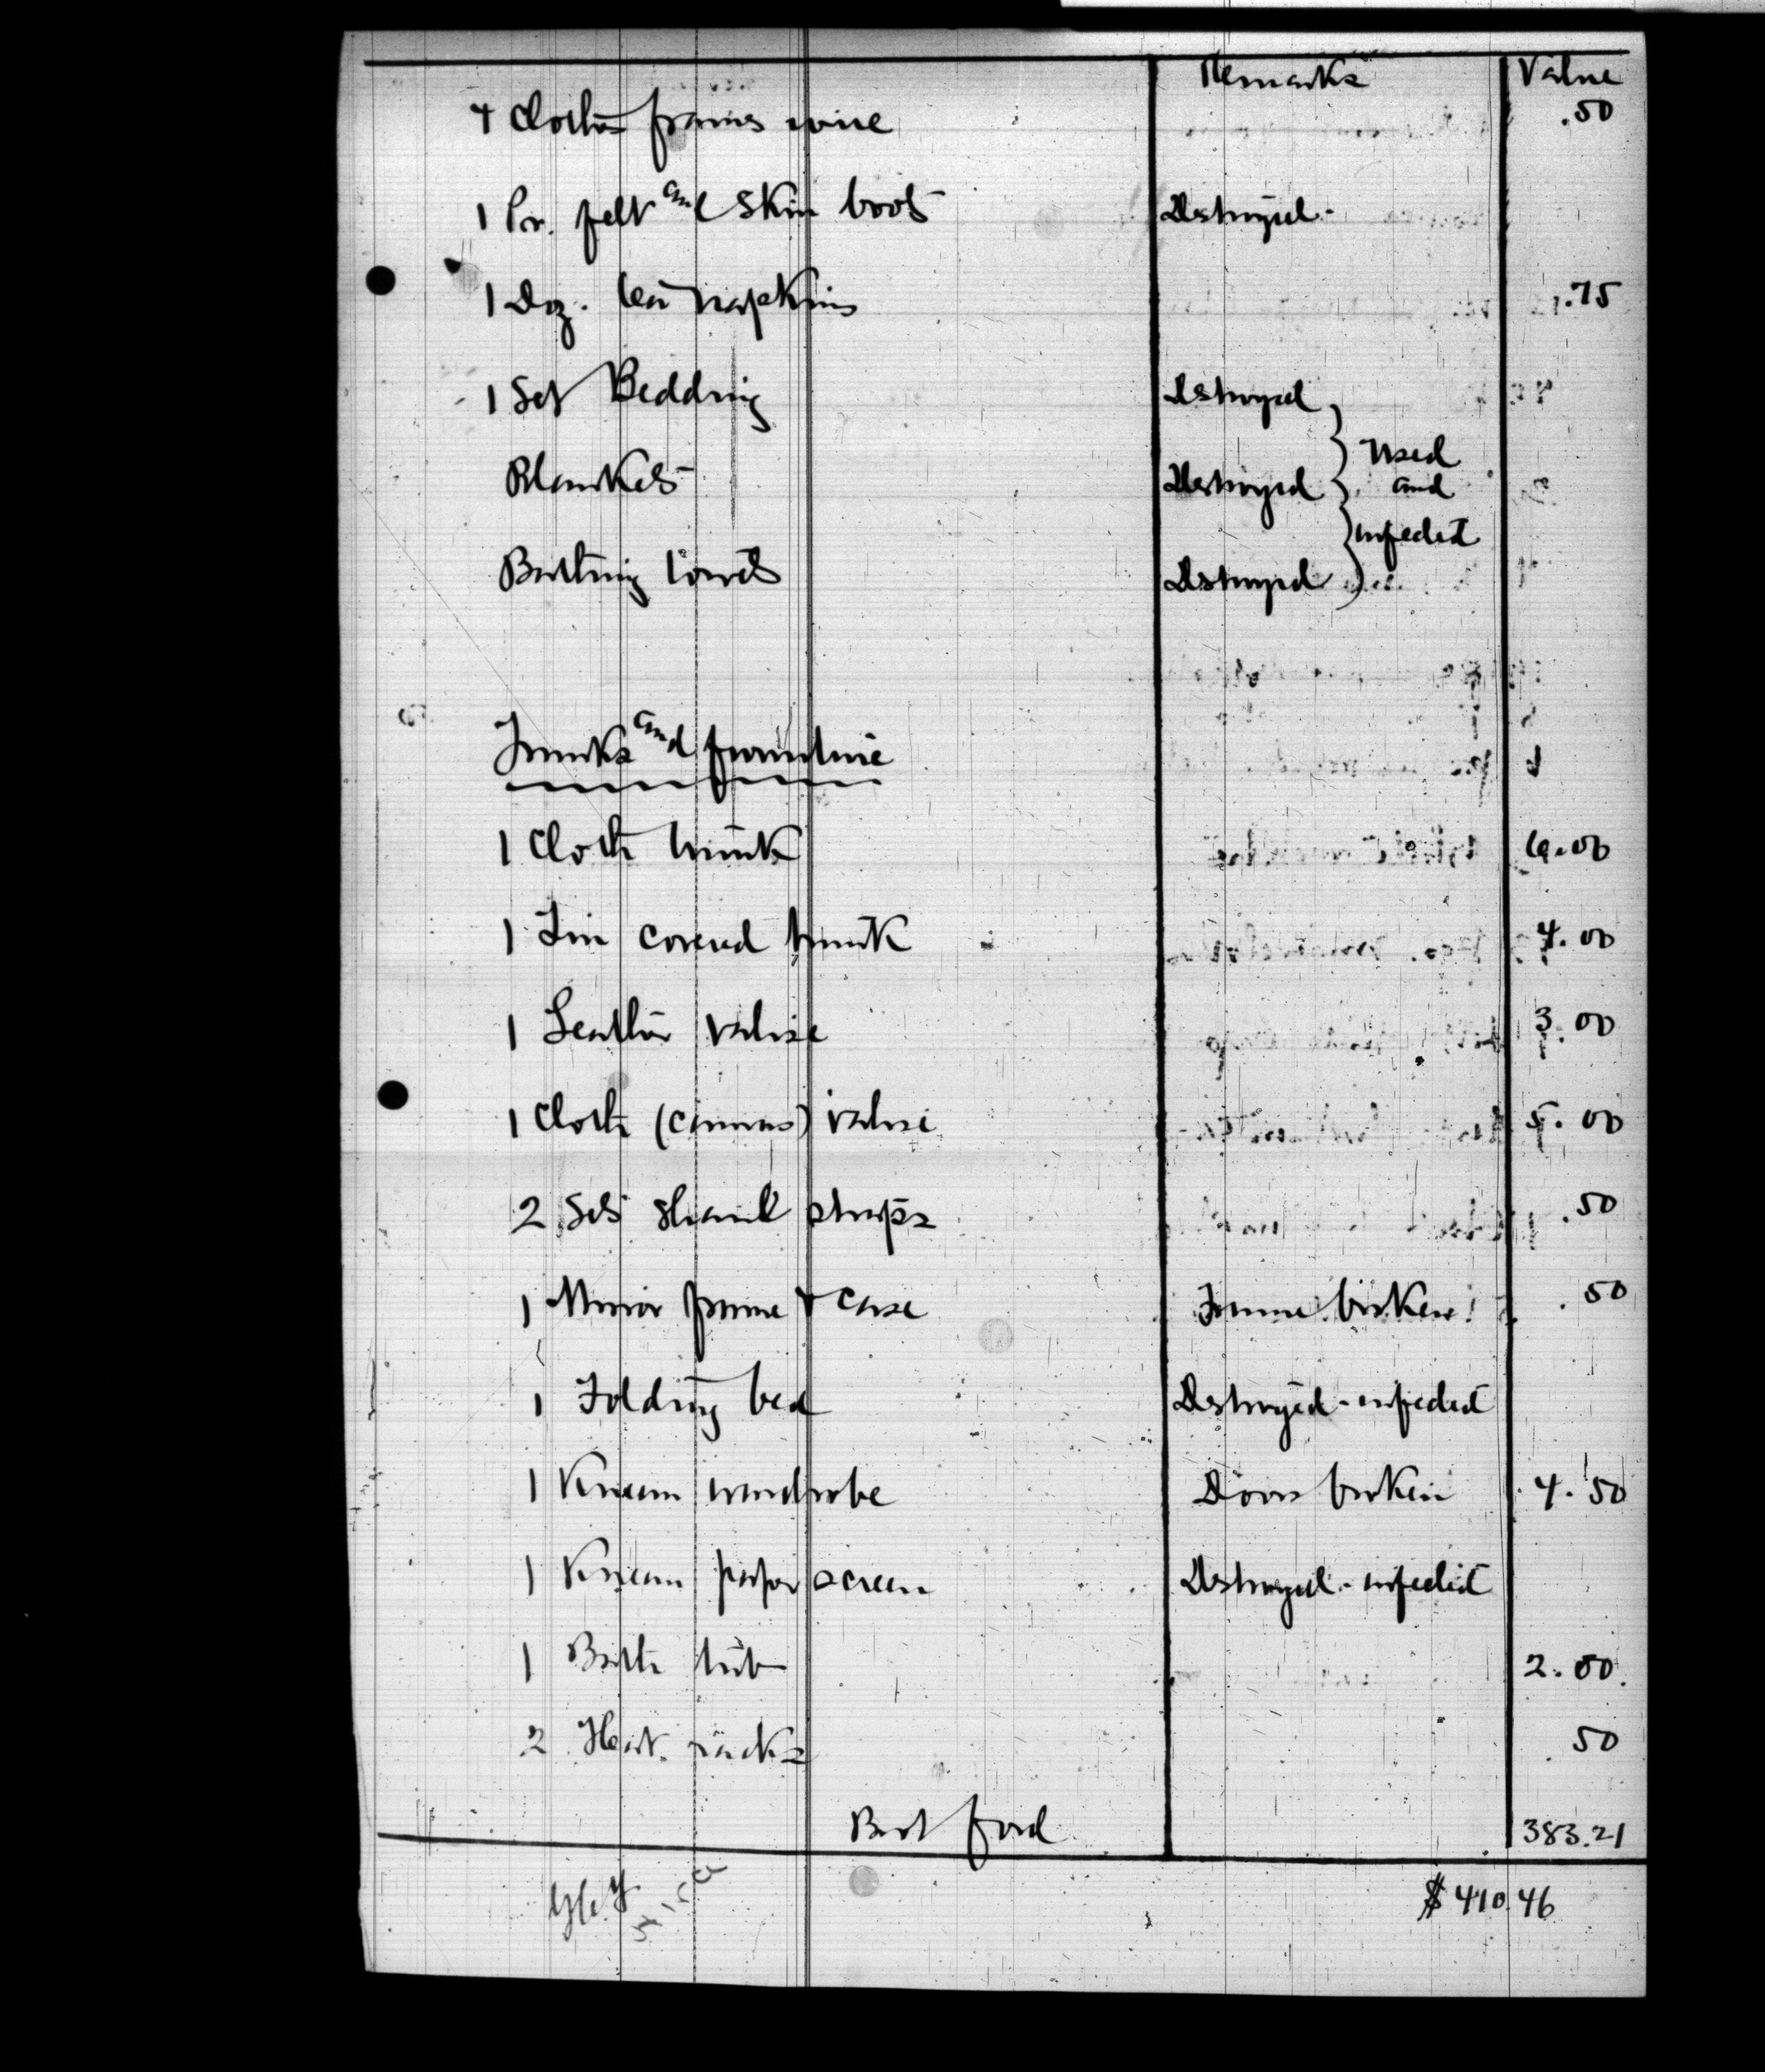 Remarks Value
4 Clothes frames wire .50
1 Pr. felt and skin boots Destroyed-
1 Doz. tea napkins .75
1 Set Bedding Destroyed
Used
Blankets Destroyed and
infected
Bathing towels Destroyed
Trunks and furniture
1 Cloth trunk 6.00
1 Tin covered trunk 4.00
1 Leather valise 3.00
1 Cloth (canvas) valise 5.00
2 Sets shawl straps .50
1 Mirror frame & case Frame broken .50
1 Folding bed Destroyed-infected
1 Korean wardrobe Doors broken 4.50
1 Korean paper screen Destroyed-infected
1 Bath tub 2.00
2 Hat racks 50
Brot ford 383.21
$410.46